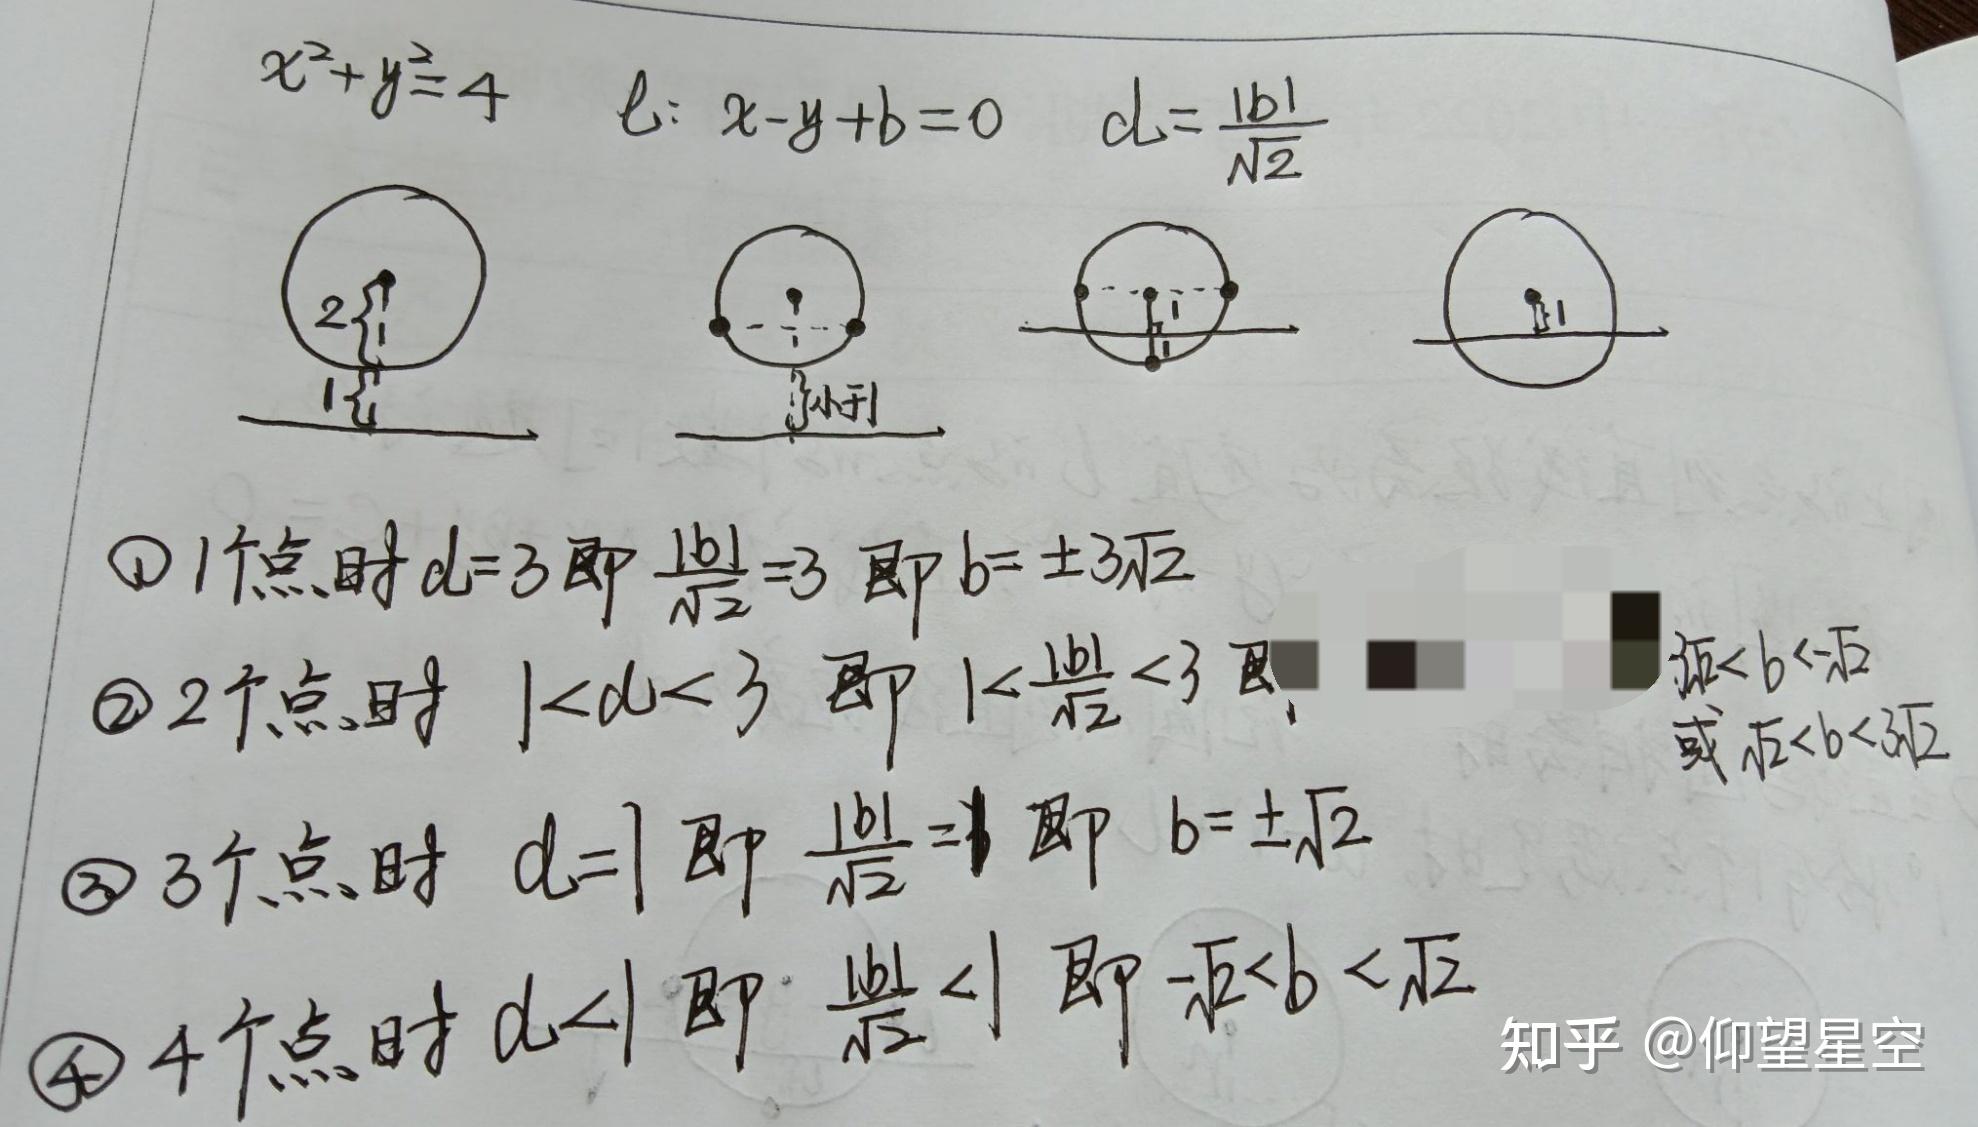 x²+y²=4 l: x-y+b=0 d=|b|/√2
2 1 小于1 1 1 1
①1个点时 d=3 即 |b|/√2=3 即 b=±3√2
②2个点时 1<d<3 即 1<|b|/√2<3 即 3√2<b<-√2
或 √2<b<3√2
③3个点时 d=1 即 |b|/√2=1 即 b=±√2
④4个点时 d<1 即 |b|/√2<1 即 -√2<b<√2
知乎 @仰望星空